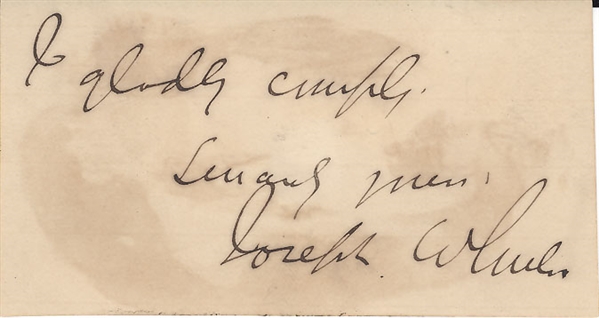 I
gladly comply.
Sincerely yours
Joseph Wheeler